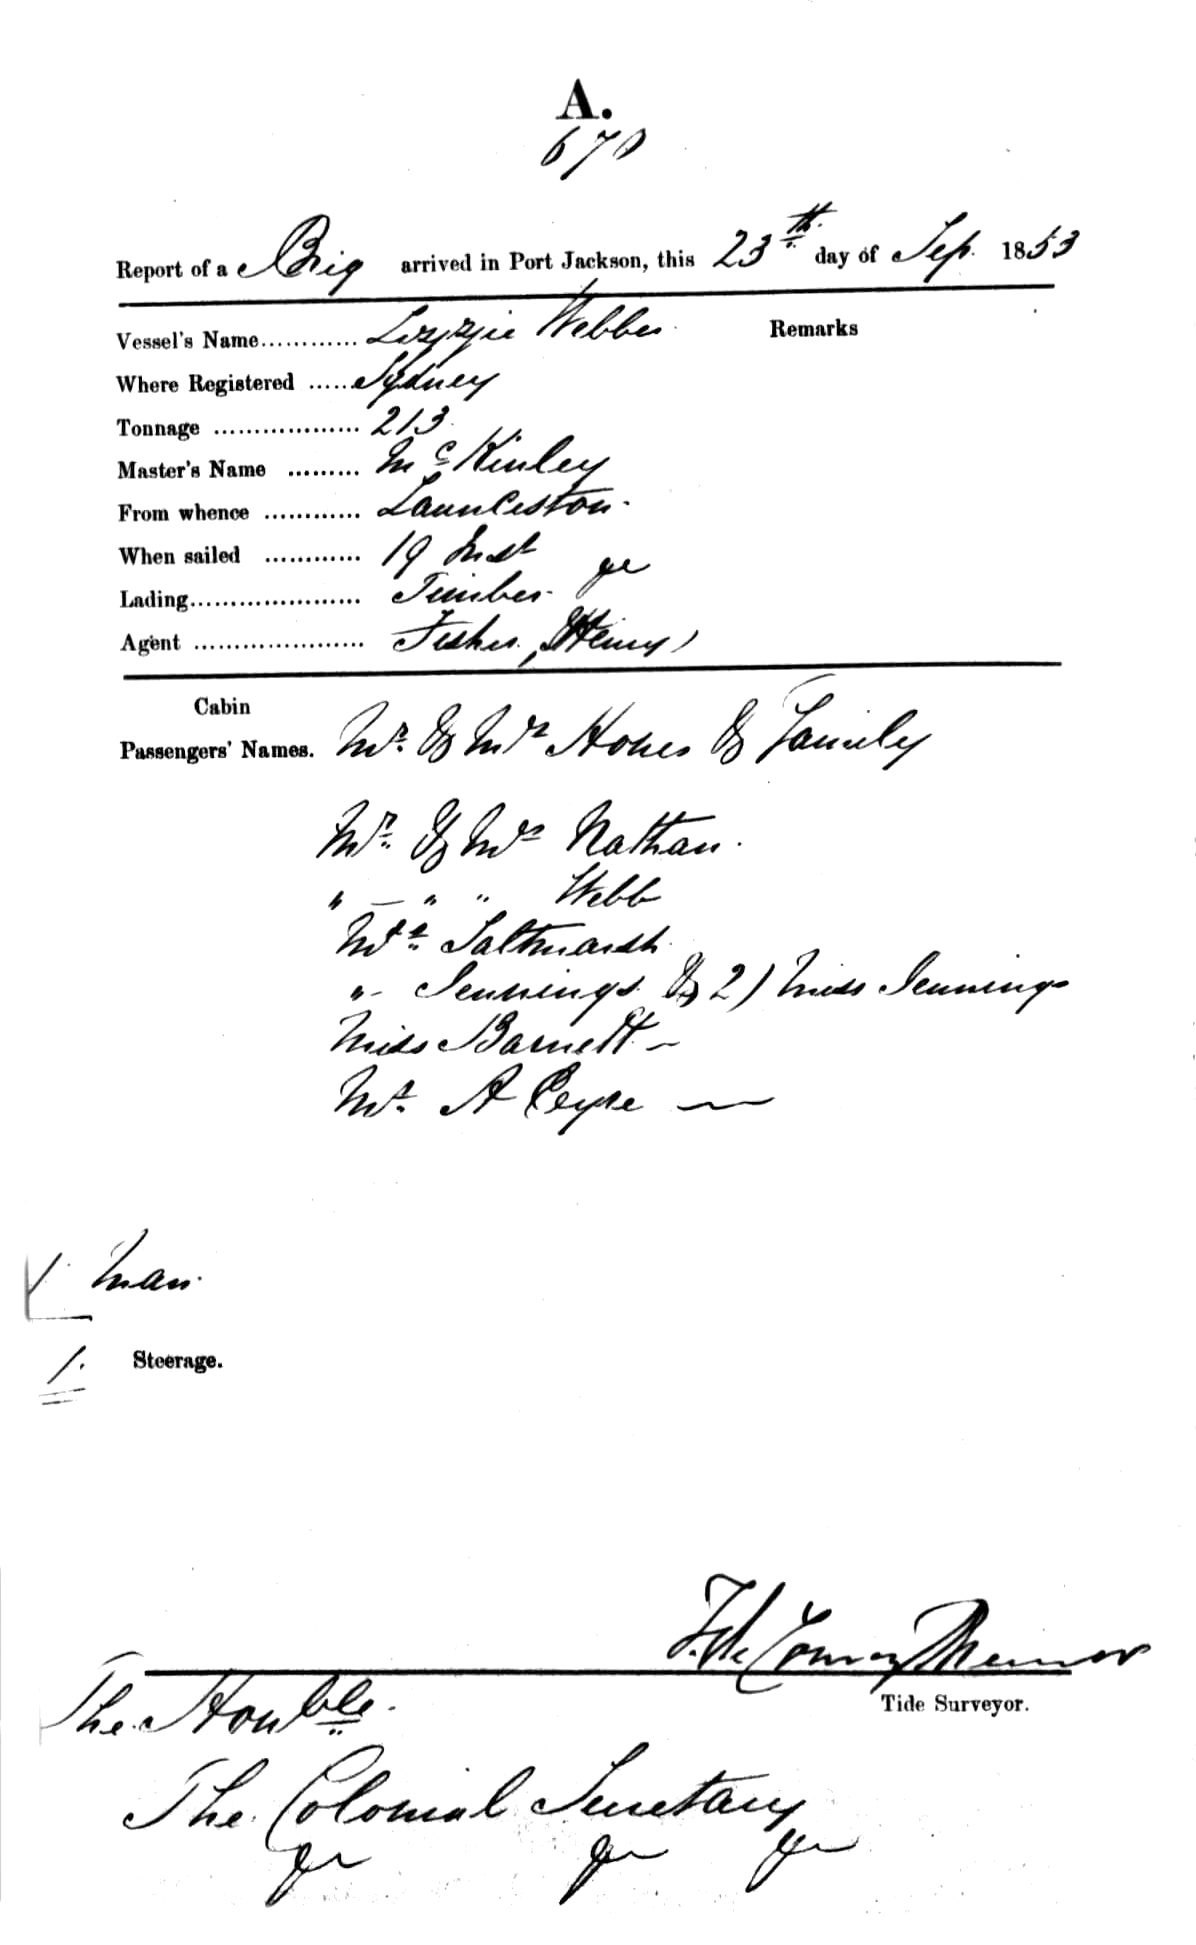 A.
670
Report of a Brig arrived in Port Jackson, this 23th day of Sep. 1853
Vessel's Name............ Lizzie Webber Remarks
Where Registered ..... Sydney
Tonnage .................. 213
Master's Name ......... McKinley
From whence ............ Launceston.
When sailed ............ 19 Inst
Lading..................... Timber. &c
Agent ..................... Fisher, (Henry)
Cabin
Passengers' Names. Mr. & Mrs Hones & Family
Mr. & Mrs Nathan.
" – " " Webb
Mrs. Saltmarsh.
" - Jennings & 2) Miss Jennings
Miss Barnett –
Mr. A Eeyre —
1. Man.
1. Steerage.
Tide Surveyor.
The Honble.
The Colonial Secretary
&c &c &c